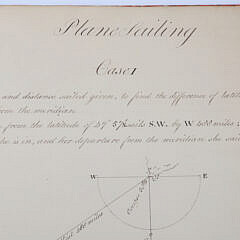 Plane Sailing
Case 1
and distance sailed given, to find the difference of latit
from the meridian
from the latitude of 47° 57' sails S.W. by W
he is in, and her departure from the meridian she sai
W E